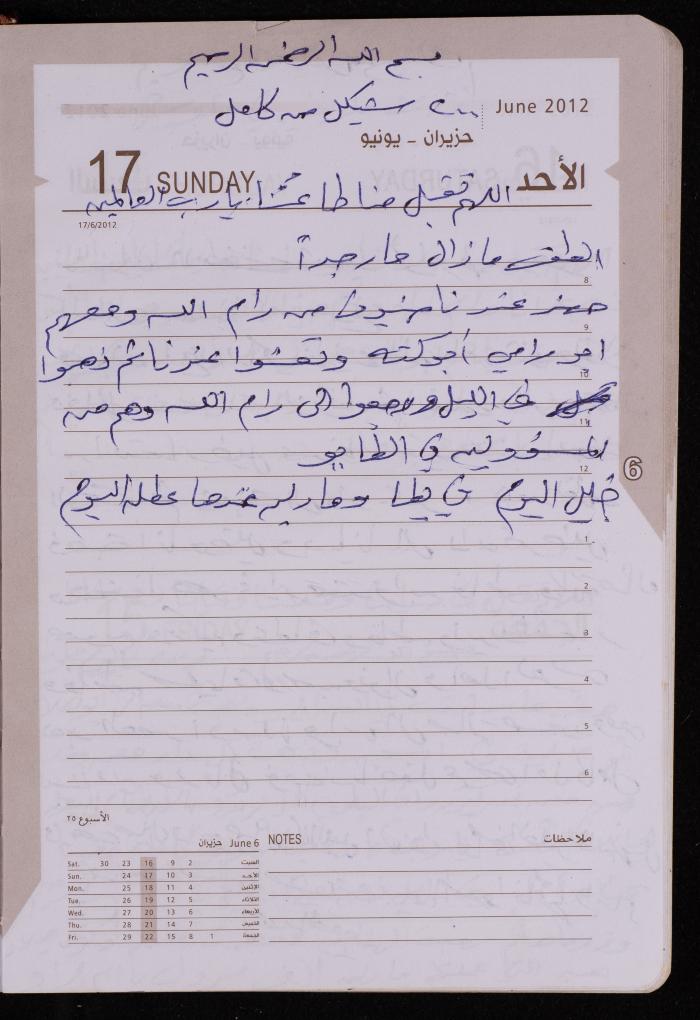 بسم الله الرحمن الرحيم
٢٠٠٠ شيكل من كامل
June 2012
حزيران - يونيو
17 SUNDAY الأحد
اللهم تقبل منا طاعتنا يا رب العالمين
17/6/2012
الطقس مازال حار جداً
8
حضر عندنا من رام الله ومعهم
9
ابو رامي وتعشوا عندنا ثم ذهبوا
10
في الليل ورجعوا الى رام الله وهم من
11
في الطابو
12
6
خليل اليوم في يطا عندها عطله اليوم
1
2
3
4
5
6
الأسبوع ٢٥
June 6 حزيران
NOTES ملاحظات
Sat. 30 23 16 9 2 السبت
Sun. 24 17 10 3 الأحد
Mon. 25 18 11 4 الاثنين
Tue. 26 19 12 5 الثلاثاء
Wed. 27 20 13 6 الأربعاء
Thu. 28 21 14 7 الخميس
Fri. 29 22 15 8 1 الجمعة